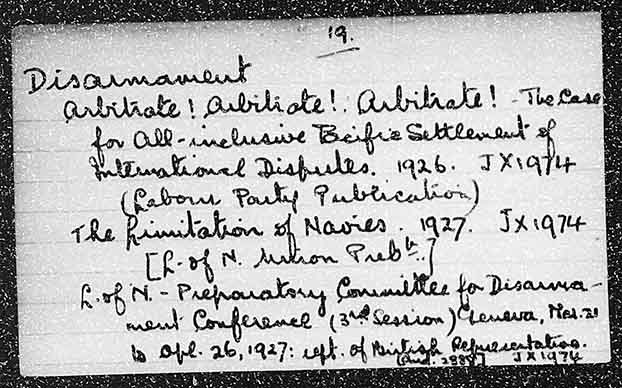 19.
Disarmament
Arbitrate! Arbitrate! Arbitrate! - The Case
for All-inclusive Pacific Settlement of
International Disputes. 1926. JX1974
(Labour Party Publication)
The Limitation of Navies. 1927. JX1974
[L. of N. Union Publn.]
L. of N. - Preparatory Committee for Disarma-
ment Conference (3rd Session) Geneva, Mar. 21
to Apl. 26, 1927: rept. of British Representative.
(Cmd. 2888) JX1974